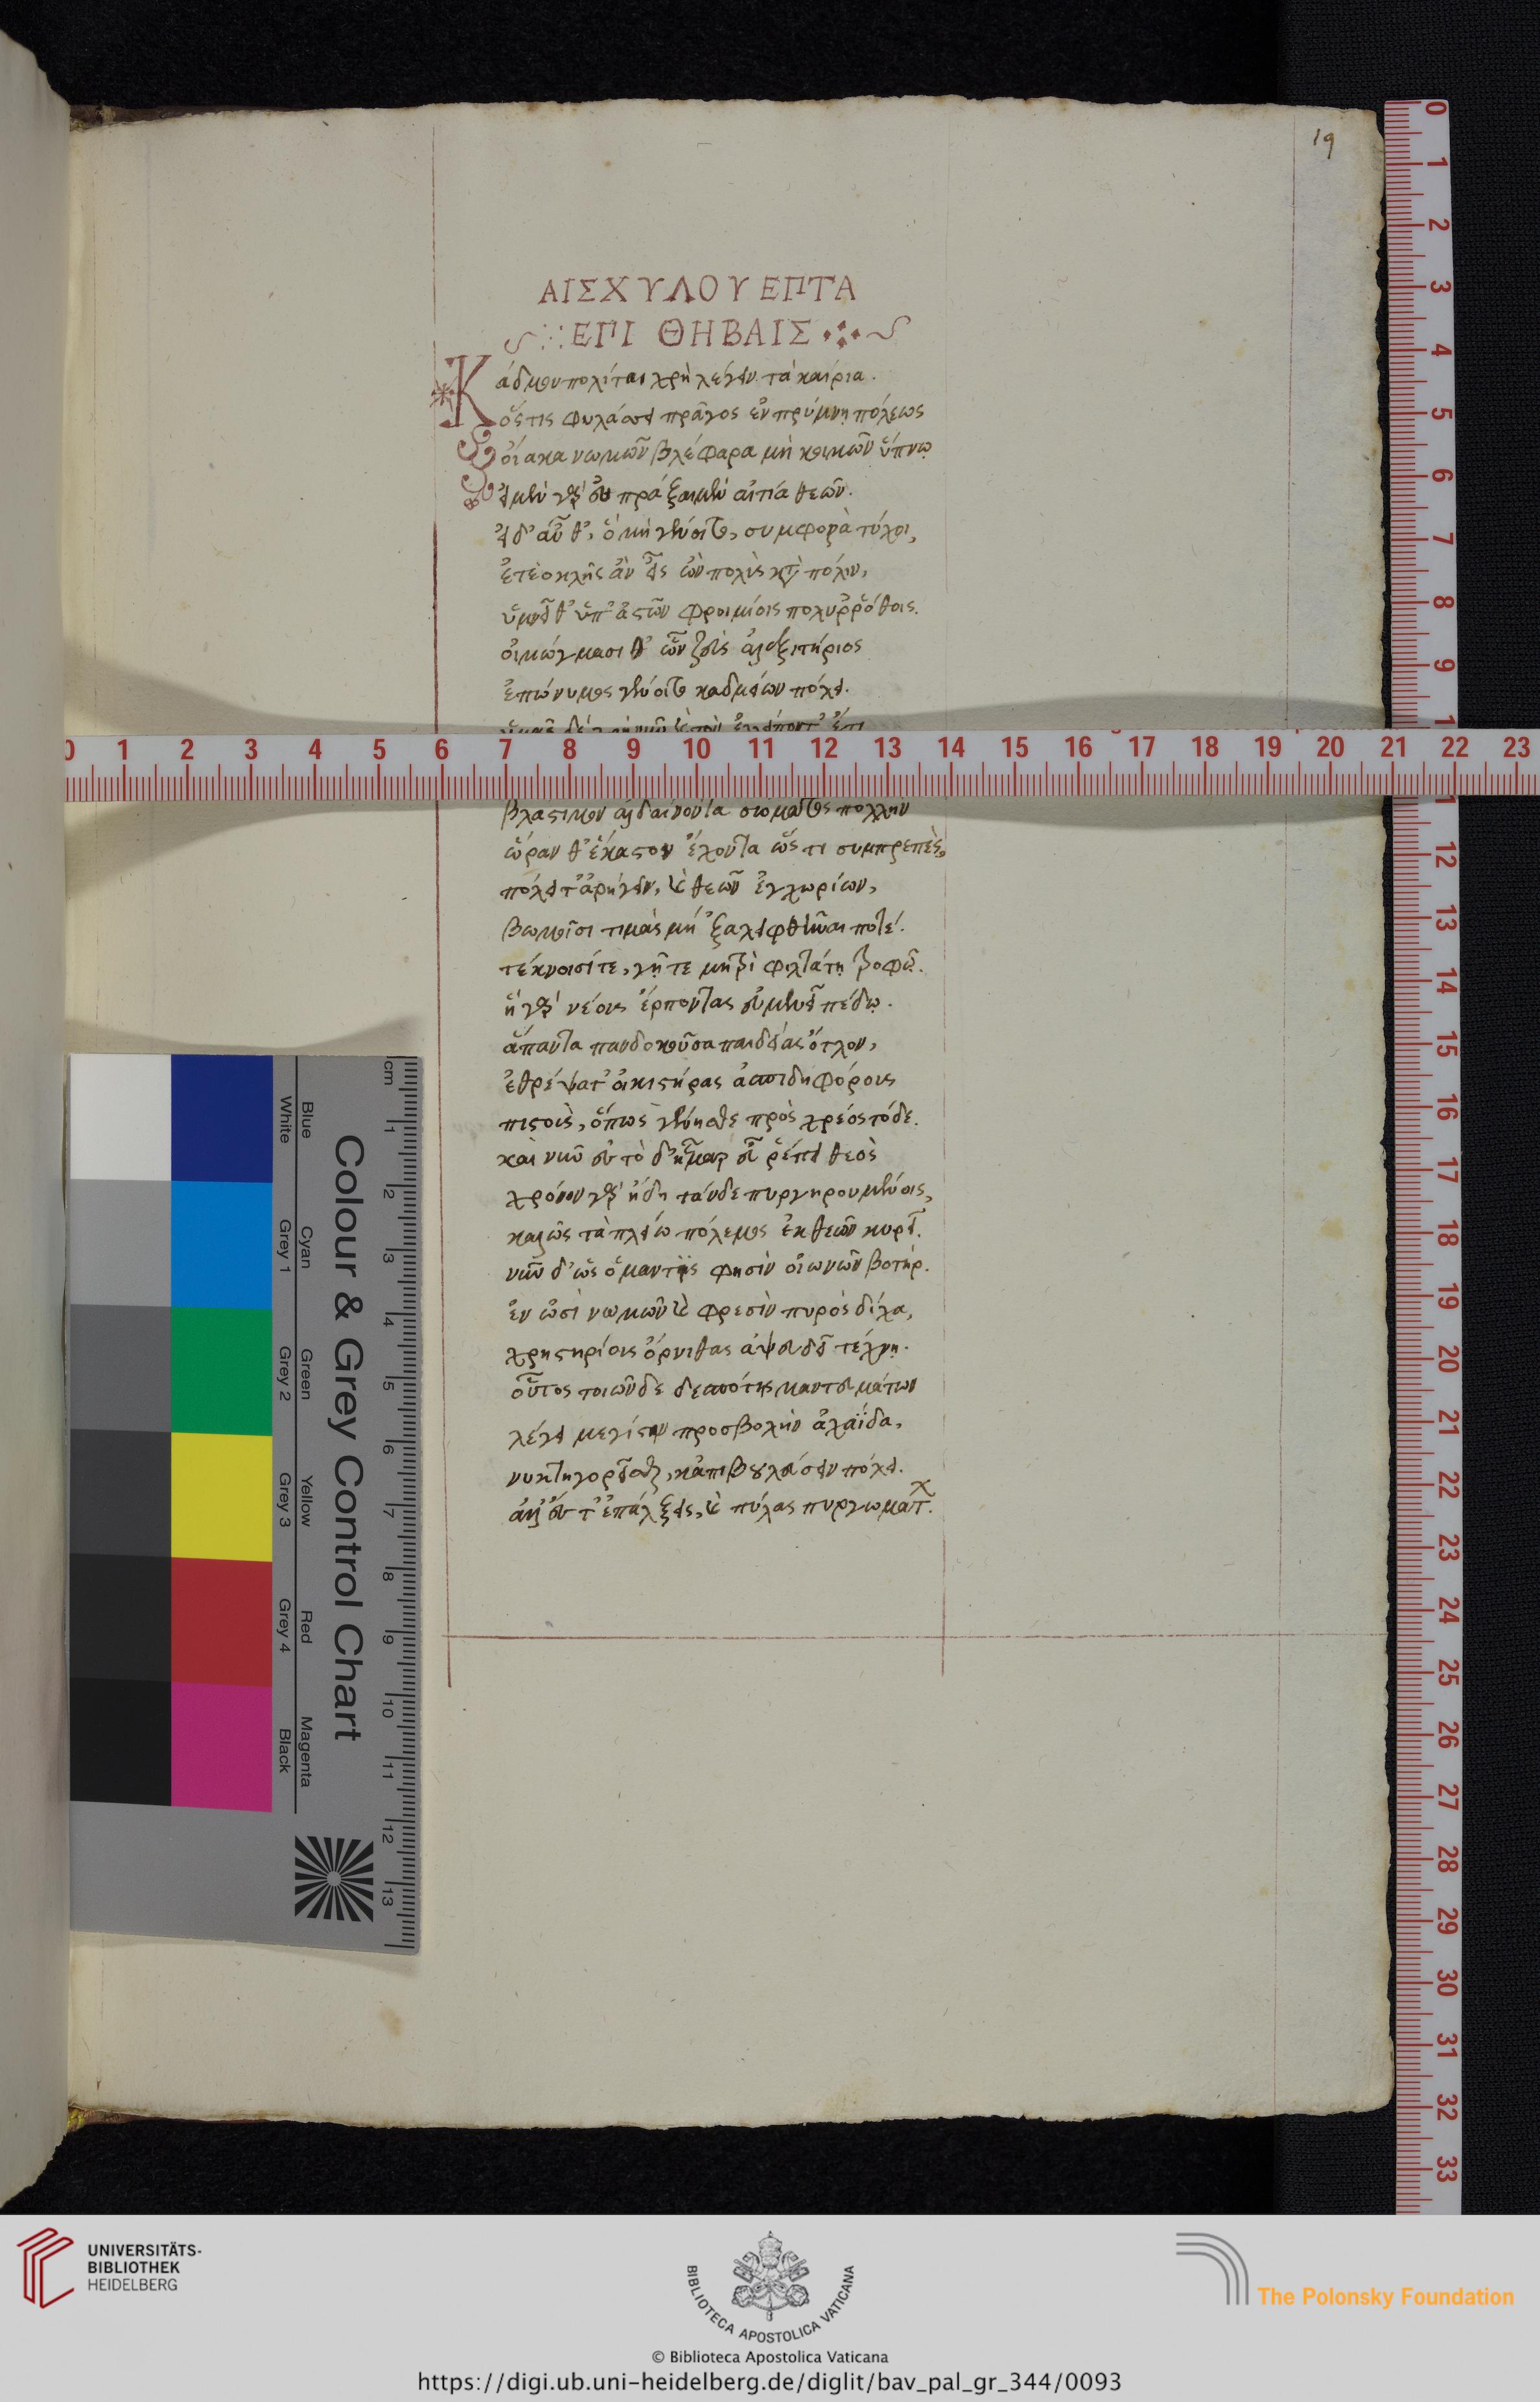 19
ΑΙΣΧΥΛΟΥ ΕΠΤΑ
ΕΠΙ ΘΗΒΑΙΣ
Κάδμου πολίται χρὴ λέγειν τὰ καίρια.
ὅστις φυλάσσει πρᾶγος ἐν πρύμνῃ πόλεως
οἴακα νωμῶν βλέφαρα μὴ κοιμῶν ὕπνῳ
εἰ μὲν γὰρ εὖ πράξαιμεν αἰτία θεῶν.
εἰ δ' αὖθ', ὃ μὴ γένοιτο, συμφορὰ τύχοι,
ἐτεοκλῆς ἂν εἷς ὢν πολὺς κατὰ πόλιν,
ὑμνεῖθ' ὑπ' ἀστῶν φροιμίοις πολυῤῥόθοις.
οἰμώγμασι θ' ὧν ζεὺς ἀλεξιτήριος
ἐπώνυμος γένοιτο καδμείων πόλει.
ὑμᾶς δὲ χρὴ νῦν καὶ τὸν ἐλλείποντ' ἔτι
βλαστιμον ἀλδαίνοντα σώματος πολλὴν
ὥραν θ' ἕκαστον ἔχοντα ὥς τι συμπρεπὲς,
πόλει τ' ἀρήγειν, καὶ θεῶν ἐγχωρίων,
βωμοῖσι τιμὰς μὴ 'ξαλειφθῆναι ποτέ.
τέκνοισί τε, γῇ τε μητρὶ φιλτάτῃ τροφῷ.
ἡ γὰρ νέους ἕρποντας εὐμενεῖ πέδῳ.
ἅπαντα πανδοκοῦσα παιδείας ὄτλον,
ἐθρέψατ' οἰκιστήρας ἀσπιδηφόρους
πιστοὺς, ὅπως γένησθε πρὸς χρέος τόδε.
καὶ νῦν εἰς τὸ δ' ἦμαρ εὖ ῥέπει θεὸς
χρόνον γὰρ ἤδη τόνδε πυργηρουμένοις,
καλῶς τὰ πλείω πόλεμος ἐκ θεῶν κυρεῖ.
νῦν δ' ὡς ὁ μάντις φησὶν οἰωνῶν βοτὴρ.
ἐν ὠσὶ νωμῶν καὶ φρεσὶν πυρὸς δίχα,
χρηστηρίους ὄρνιθας ἀψευδεῖ τέχνῃ.
οὗτος τοιῶνδε δεσπότης μαντευμάτων
λέγει μεγίστην προσβολὴν ἀχαΐδα,
νυκτηγορεῖσθαι, κἀπιβουλεύσειν πόλει.
ἀλλ' εἰς τ' ἐπάλξεις, καὶ πύλας πυργωμάτ.
0 1 2 3 4 5 6 7 8 9 10 11 12 13 14 15 16 17 18 19 20 21 22 23
0 1 2 3 4 5 6 7 8 9 1 1 12 13 14 15 16 17 18 19 20 21 22 23 24 25 26 27 28 29 30 31 32 33
Colour & Grey Control Chart
cm 1 2 3 4 5 6 7 8 9 10 11 12 13
Blue Cyan Green Yellow Red Magenta
White Grey 1 Grey 2 Grey 3 Grey 4 Black
UNIVERSITÄTS-
BIBLIOTHEK
HEIDELBERG
BIBLIOTECA APOSTOLICA VATICANA
The Polonsky Foundation
© Biblioteca Apostolica Vaticana
https://digi.ub.uni-heidelberg.de/diglit/bav_pal_gr_344/0093